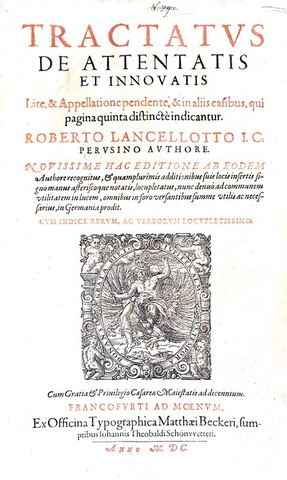 TRACTATVS
DE ATTENTATIS
ET INNOVATIS
Lite, & Appellatione pendente, & in aliis casibus, qui
pagina quinta distinctè indicantur.
ROBERTO LANCELLOTTO I. C.
PERVSINO AVTHORE.
NOVISSIME HAC EDITIONE AB EODEM
Authore recognitus, & quamplurimis additionibus suis locis insertis si-
gno manus asteriscoque notatis, locupletatus, nunc denuò ad communem
vtilitatem in lucem, omnibus in foro versantibus summè vtilis ac neces-
sarius, in Germania prodit.
CVM INDICE RERVM, AC VERBORVM LOCVPLETISSIMO.
Cum Gratia & Priuilegio Cæsareæ Maiestatis ad decennium.
FRANCOFVRTI AD MOENVM,
Ex Officina Typographica Matthæi Beckeri, sum-
ptibus Iohannis Theobaldi Schönvvetteri.
ANNO M. DC.